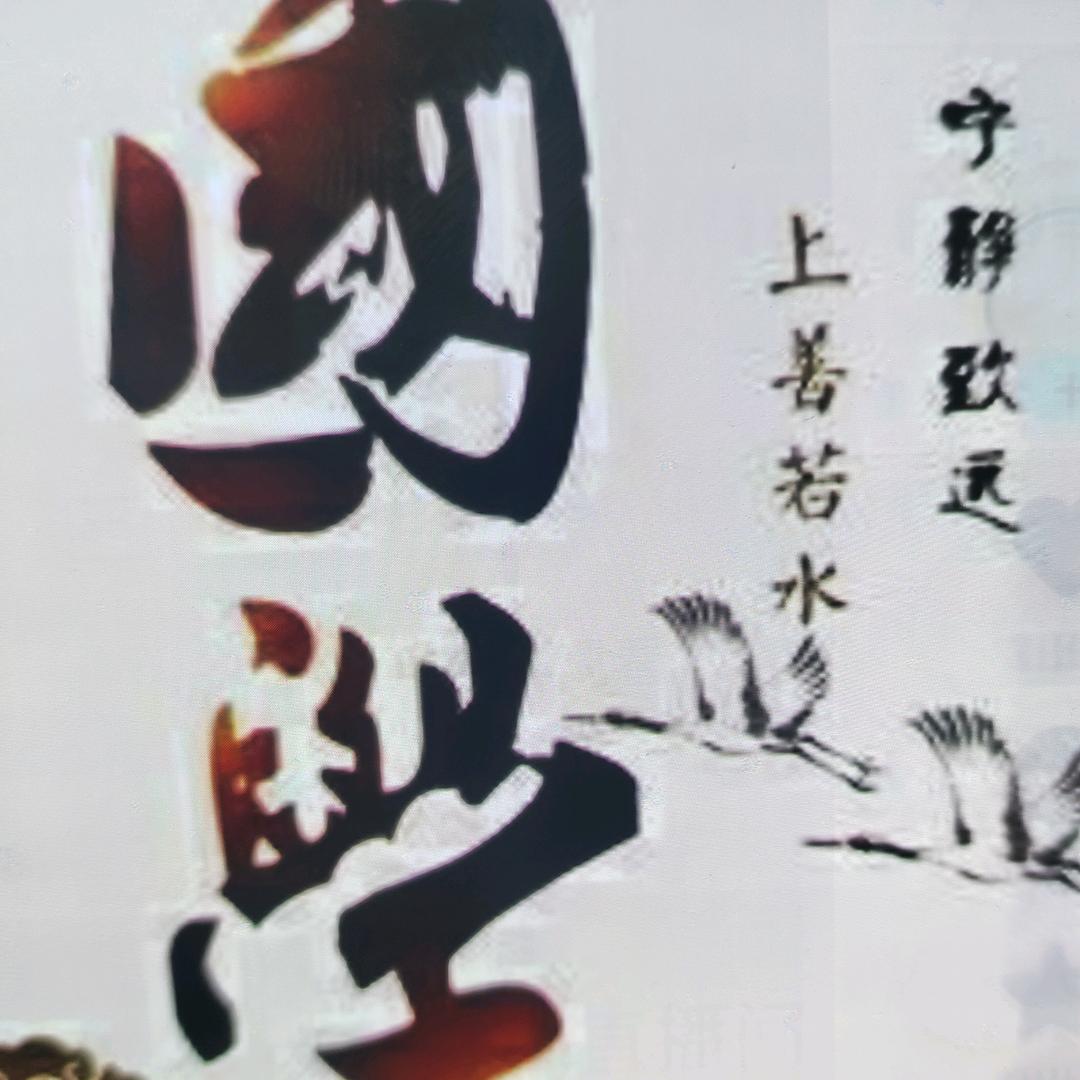 宁静致远
上善若水
國學